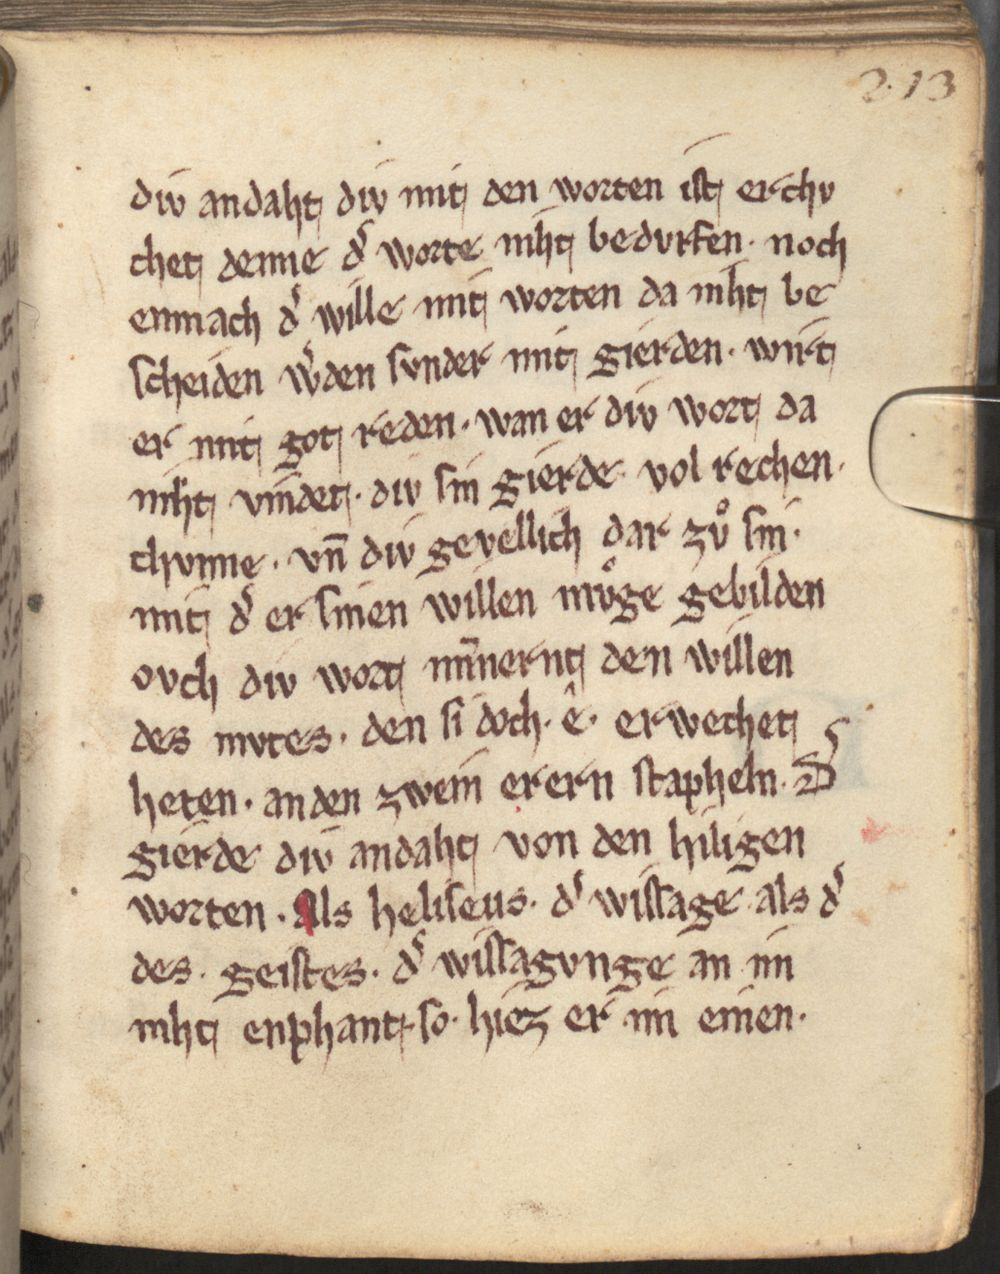 213
div andaht div mit den worten ist erchv
chet denne dˢ worte niht bedvrfen · noch
enmach dˢ wille mit worten da niht be
scheiden wˢden svnder mit gierden · wirt
er mit got reden · wan er div wort da
niht vindet · div sin gierde vol rechen ·
chvnne · vn̄ div gevellich dar zvͦ sin ·
mit dˢ er sinen willen mvͦge gebilden
ovch div wort min̄ernt den willen
des mvtes · den si doch · ê · erwechet
heten · an den zwein erern stapheln · Dˢ
gierde div andaht von den hiligen
worten · Als heliseus · dˢ wissage als dˢ
des · geistes · dˢ wissagvnge an im
niht enphant · so · hiez er im einen ·